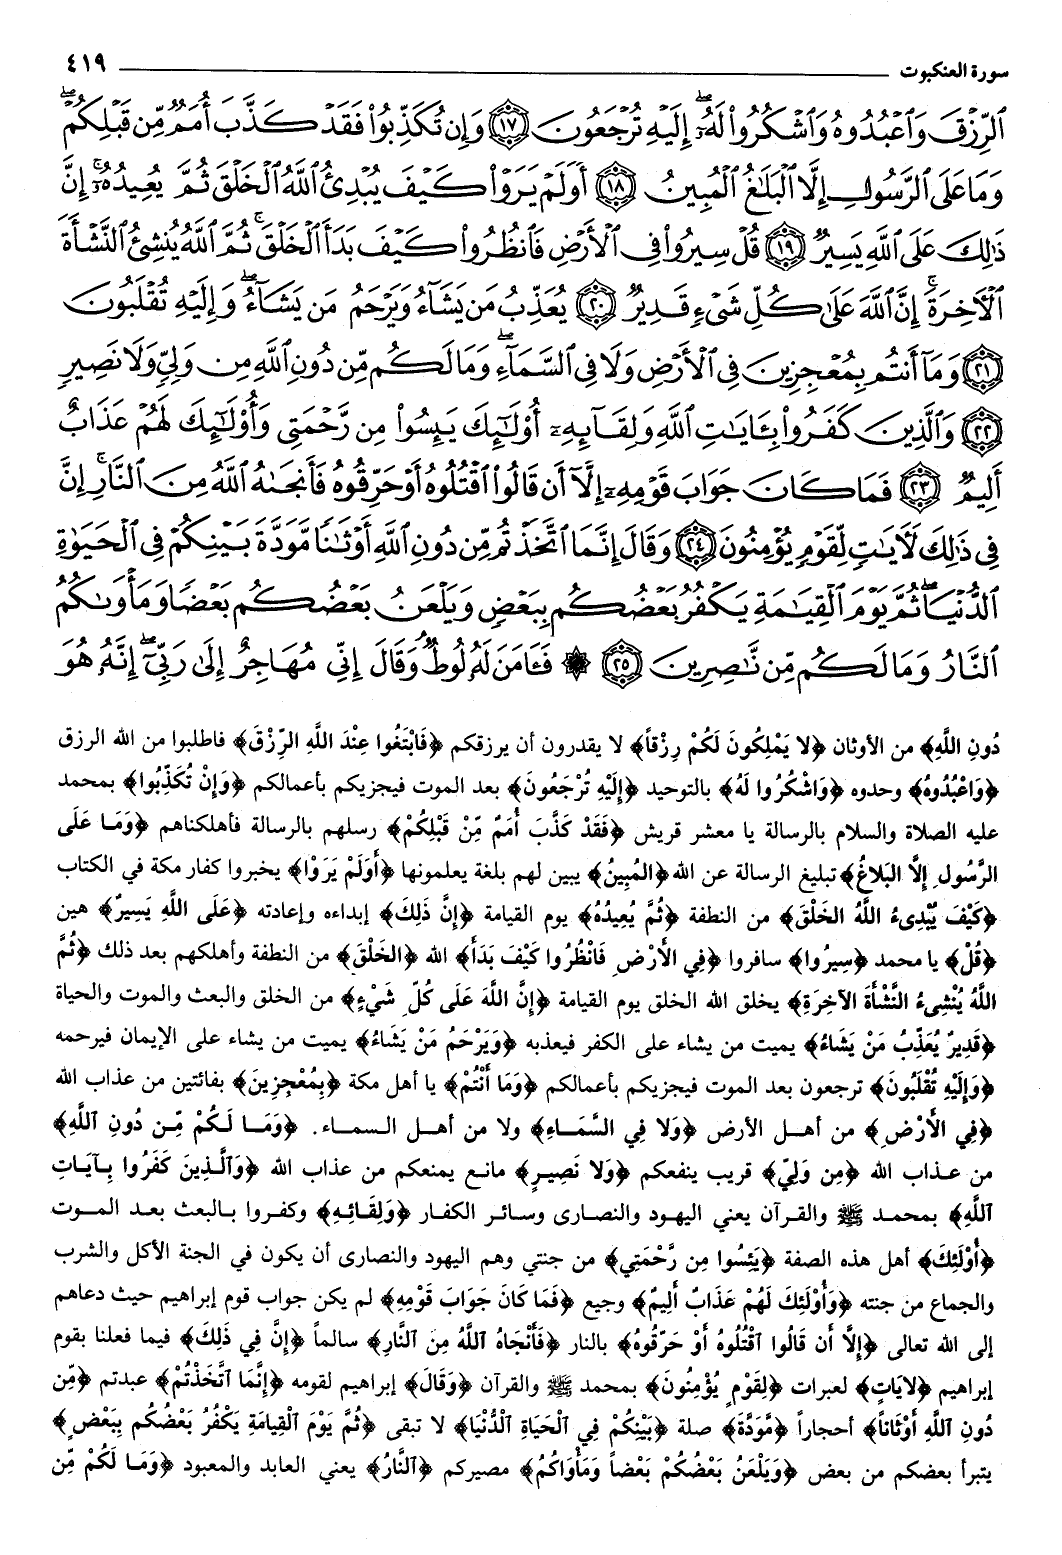 سورة العنكبوت ٤١٩
ٱلرِّزْقَ وَٱعْبُدُوهُ وَٱشْكُرُوا۟ لَهُۥٓ ۖ إِلَيْهِ تُرْجَعُونَ ﴿١٧﴾ وَإِن تُكَذِّبُوا۟ فَقَدْ كَذَّبَ أُمَمٌ مِّن قَبْلِكُمْ ۖ
وَمَا عَلَى ٱلرَّسُولِ إِلَّا ٱلْبَلَٰغُ ٱلْمُبِينُ ﴿١٨﴾ أَوَلَمْ يَرَوْا۟ كَيْفَ يُبْدِئُ ٱللَّهُ ٱلْخَلْقَ ثُمَّ يُعِيدُهُۥٓ ۚ إِنَّ
ذَٰلِكَ عَلَى ٱللَّهِ يَسِيرٌ ﴿١٩﴾ قُلْ سِيرُوا۟ فِى ٱلْأَرْضِ فَٱنظُرُوا۟ كَيْفَ بَدَأَ ٱلْخَلْقَ ۚ ثُمَّ ٱللَّهُ يُنشِئُ ٱلنَّشْأَةَ
ٱلْءَاخِرَةَ ۚ إِنَّ ٱللَّهَ عَلَىٰ كُلِّ شَىْءٍ قَدِيرٌ ﴿٢٠﴾ يُعَذِّبُ مَن يَشَآءُ وَيَرْحَمُ مَن يَشَآءُ ۖ وَإِلَيْهِ تُقْلَبُونَ
﴿٢١﴾ وَمَآ أَنتُم بِمُعْجِزِينَ فِى ٱلْأَرْضِ وَلَا فِى ٱلسَّمَآءِ ۖ وَمَا لَكُم مِّن دُونِ ٱللَّهِ مِن وَلِىٍّ وَلَا نَصِيرٍ
﴿٢٢﴾ وَٱلَّذِينَ كَفَرُوا۟ بِـَٔايَٰتِ ٱللَّهِ وَلِقَآئِهِۦٓ أُو۟لَٰٓئِكَ يَئِسُوا۟ مِن رَّحْمَتِى وَأُو۟لَٰٓئِكَ لَهُمْ عَذَابٌ
أَلِيمٌ ﴿٢٣﴾ فَمَا كَانَ جَوَابَ قَوْمِهِۦٓ إِلَّآ أَن قَالُوا۟ ٱقْتُلُوهُ أَوْ حَرِّقُوهُ فَأَنجَىٰهُ ٱللَّهُ مِنَ ٱلنَّارِ ۚ إِنَّ
فِى ذَٰلِكَ لَءَايَٰتٍ لِّقَوْمٍ يُؤْمِنُونَ ﴿٢٤﴾ وَقَالَ إِنَّمَا ٱتَّخَذْتُم مِّن دُونِ ٱللَّهِ أَوْثَٰنًا مَّوَدَّةَ بَيْنِكُمْ فِى ٱلْحَيَوٰةِ
ٱلدُّنْيَا ۖ ثُمَّ يَوْمَ ٱلْقِيَٰمَةِ يَكْفُرُ بَعْضُكُم بِبَعْضٍ وَيَلْعَنُ بَعْضُكُم بَعْضًا وَمَأْوَىٰكُمُ
ٱلنَّارُ وَمَا لَكُم مِّن نَّٰصِرِينَ ﴿٢٥﴾ ۞ فَـَٔامَنَ لَهُۥ لُوطٌ ۘ وَقَالَ إِنِّى مُهَاجِرٌ إِلَىٰ رَبِّىٓ ۖ إِنَّهُۥ هُوَ
دُونِ اللَّهِ﴾ من الأوثان ﴿لا يَمْلِكُونَ لَكُمْ رِزْقاً﴾ لا يقدرون أن يرزقكم ﴿فَابْتَغُوا عِنْدَ اللَّهِ الرِّزْقَ﴾ فاطلبوا من الله الرزق
﴿وَاعْبُدُوهُ﴾ وحدوه ﴿وَاشْكُرُوا لَهُ﴾ بالتوحيد ﴿إِلَيْهِ تُرْجَعُونَ﴾ بعد الموت فيجزيكم بأعمالكم ﴿وَإِنْ تُكَذِّبُوا﴾ بمحمد
عليه الصلاة والسلام بالرسالة يا معشر قريش ﴿فَقَدْ كَذَّبَ أُمَمٌ مِّنْ قَبْلِكُمْ﴾ رسلهم بالرسالة فأهلكناهم ﴿وَمَا عَلَى
الرَّسُولِ إِلَّا البَلاغُ﴾ تبليغ الرسالة عن الله ﴿المُبِينُ﴾ يبين لهم بلغة يعلمونها ﴿أَوَلَمْ يَرَوْا﴾ يخبروا كفار مكة في الكتاب
﴿كَيْفَ يُبْدِىءُ اللَّهُ الخَلْقَ﴾ من النطفة ﴿ثُمَّ يُعِيدُهُ﴾ يوم القيامة ﴿إِنَّ ذَلِكَ﴾ إبداءه وإعادته ﴿عَلَى اللَّهِ يَسِيرٌ﴾ هين
﴿قُلْ﴾ يا محمد ﴿سِيرُوا﴾ سافروا ﴿فِي الأَرْضِ فَانْظُرُوا كَيْفَ بَدَأَ﴾ الله ﴿الخَلْقَ﴾ من النطفة وأهلكهم بعد ذلك ﴿ثُمَّ
اللَّهُ يُنْشِىءُ النَّشْأَةَ الآخِرَةِ﴾ يخلق الله الخلق يوم القيامة ﴿إِنَّ اللَّهَ عَلَى كُلِّ شَيْءٍ﴾ من الخلق والبعث والموت والحياة
﴿قَدِيرٌ يُعَذِّبُ مَنْ يَشَاءُ﴾ يميت من يشاء على الكفر فيعذبه ﴿وَيَرْحَمُ مَنْ يَشَاءُ﴾ يميت من يشاء على الإيمان فيرحمه
﴿وَإِلَيْهِ تُقْلَبُونَ﴾ ترجعون بعد الموت فيجزيكم بأعمالكم ﴿وَمَا أَنْتُمْ﴾ يا أهل مكة ﴿بِمُعْجِزِينَ﴾ بفائتين من عذاب الله
﴿فِي الأَرْضِ﴾ من أهل الأرض ﴿وَلا فِي السَّمَاءِ﴾ ولا من أهل السماء. ﴿وَمَا لَكُمْ مِّن دُونِ ٱللَّهِ﴾
من عذاب الله ﴿مِن وَلِيٍّ﴾ قريب ينفعكم ﴿وَلا نَصِيرٍ﴾ مانع يمنعكم من عذاب الله ﴿وَٱلَّذِينَ كَفَرُوا بِآيَاتِ
ٱللَّهِ﴾ بمحمد ﷺ والقرآن يعني اليهود والنصارى وسائر الكفار ﴿وَلِقَائِهِ﴾ وكفروا بالبعث بعد الموت
﴿أُوْلَئِكَ﴾ أهل هذه الصفة ﴿يَئِسُوا مِن رَّحْمَتِي﴾ من جنتي وهم اليهود والنصارى أن يكون في الجنة الأكل والشرب
والجماع من جنته ﴿وَأُوْلَئِكَ لَهُمْ عَذَابٌ أَلِيمٌ﴾ وجيع ﴿فَمَا كَانَ جَوَابَ قَوْمِهِ﴾ لم يكن جواب قوم إبراهيم حيث دعاهم
إلى الله تعالى ﴿إِلَّا أَن قَالُوا ٱقْتُلُوهُ أَوْ حَرِّقُوهُ﴾ بالنار ﴿فَأَنْجَاهُ ٱللَّهُ مِنَ ٱلنَّارِ﴾ سالماً ﴿إِنَّ فِي ذَلِكَ﴾ فيما فعلنا بقوم
إبراهيم ﴿لآيَاتٍ﴾ لعبرات ﴿لِقَوْمٍ يُؤْمِنُونَ﴾ بمحمد ﷺ والقرآن ﴿وَقَالَ﴾ إبراهيم لقومه ﴿إِنَّمَا ٱتَّخَذْتُمْ﴾ عبدتم ﴿مِّن
دُونِ ٱللَّهِ أَوْثَاناً﴾ أحجاراً ﴿مَّوَدَّةَ﴾ صلة ﴿بَيْنِكُمْ فِي ٱلْحَيَاةِ ٱلدُّنْيَا﴾ لا تبقى ﴿ثُمَّ يَوْمَ ٱلْقِيَامَةِ يَكْفُرُ بَعْضُكُم بِبَعْضٍ﴾
يتبرأ بعضكم من بعض ﴿وَيَلْعَنُ بَعْضُكُمْ بَعْضاً وَمَأْوَاكُمُ﴾ مصيركم ﴿ٱلنَّارُ﴾ يعني العابد والمعبود ﴿وَمَا لَكُمْ مِّن